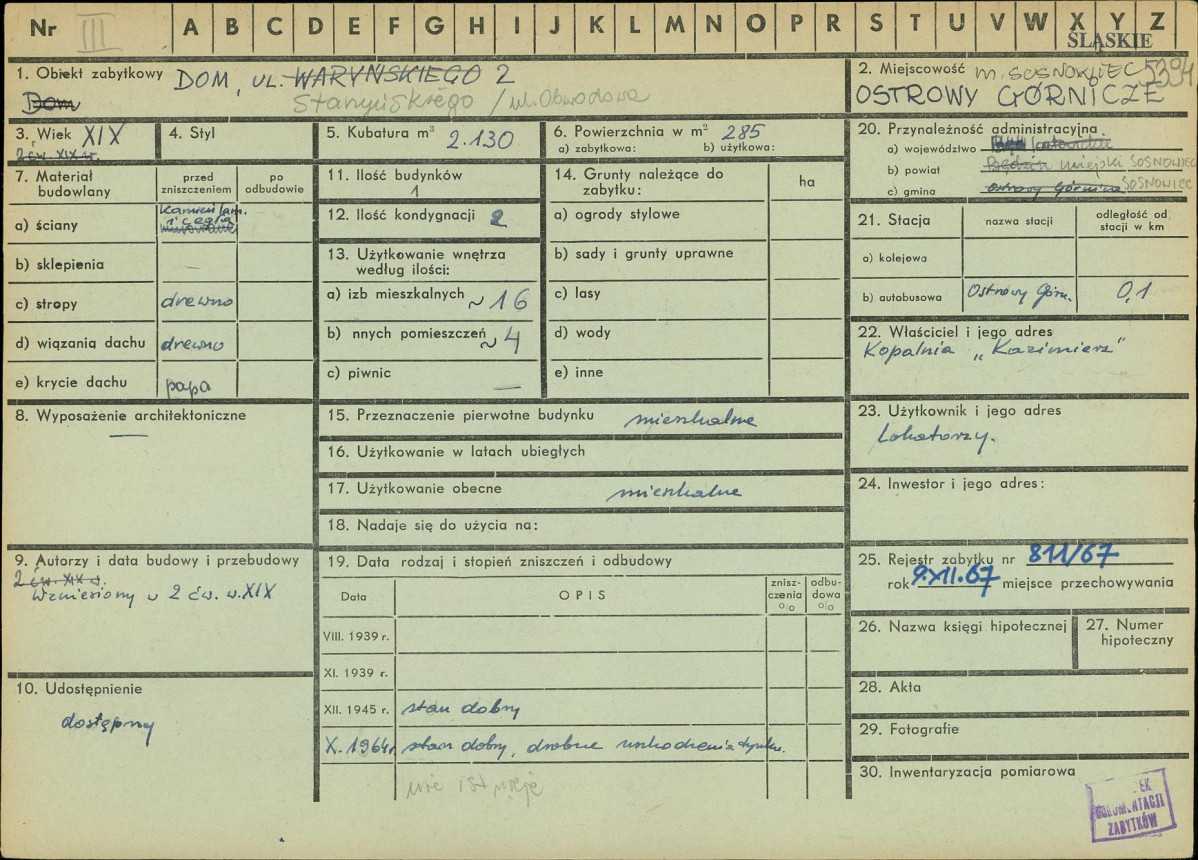 Nr III A B C D E F G H I J K L M N O P R S T U V W X Y Z
ŚLĄSKIE
1. Obiekt zabytkowy DOM, UL. WARYŃSKIEGO 2
Dom
Staszyńskiego / ul. Obwodowa
2. Miejscowość m. SOSNOWIEC 5394
OSTROWY GÓRNICZE
3. Wiek XIX
2 ćw. XIX w.
4. Styl
5. Kubatura m³ 2.130
6. Powierzchnia w m² 285
a) zabytkowa: b) użytkowa:
20. Przynależność administracyjna
a) województwo
b) powiat Będzin miejski SOSNOWIEC
c) gmina Ostrowy Górnicze SOSNOWIEC
7. Materiał budowlany
przed zniszczeniem
po odbudowie
a) ściany kamień łam. i cegła
murowane
b) sklepienia —
c) stropy drewno
d) wiązania dachu drewno
e) krycie dachu papa
8. Wyposażenie architektoniczne
—
9. Autorzy i data budowy i przebudowy
2 ćw. XIX w.
Wzniesiony w 2 ćw. w. XIX
10. Udostępnienie
dostępny
11. Ilość budynków
1
12. Ilość kondygnacji 2
13. Użytkowanie wnętrza
według ilości:
a) izb mieszkalnych ~16
b) nnych pomieszczeń ~4
c) piwnic —
14. Grunty należące do
zabytku:
ha
a) ogrody stylowe
b) sady i grunty uprawne
c) lasy
d) wody
e) inne
15. Przeznaczenie pierwotne budynku mieszkalne
16. Użytkowanie w latach ubiegłych
17. Użytkowanie obecne mieszkalne
18. Nadaje się do użycia na:
19. Data rodzaj i stopień zniszczeń i odbudowy
Data
OPIS
znisz-
czenia
%
odbu-
dowa
%
VIII. 1939 r.
XI. 1939 r.
XII. 1945 r. stan dobry
X. 1964r. stan dobry, drobne uszkodzenia tynku.
nie istnieje
21. Stacja
nazwa stacji
odległość od
stacji w km
a) kolejowa
b) autobusowa Ostrowy Górn. 0,1
22. Właściciel i jego adres
Kopalnia „Kazimierz"
23. Użytkownik i jego adres
Lokatorzy.
24. Inwestor i jego adres:
25. Rejestr zabytku nr 811/67
rok 9.XII.67 miejsce przechowywania
26. Nazwa księgi hipotecznej
27. Numer
hipoteczny
28. Akta
29. Fotografie
30. Inwentaryzacja pomiarowa
EK
DOKUMENTACJI
ZABYTKÓW